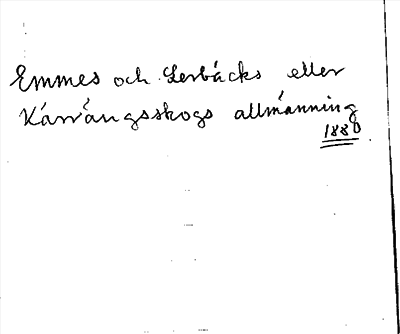 Emmes och Lerbäcks eller
Kärrängsskogs allmänning
1880